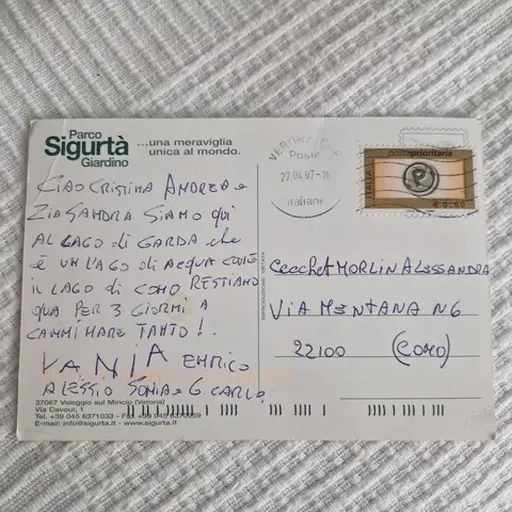 Parco
Sigurtà
Giardino
...una meraviglia
unica al mondo.
CIAO CRISTINA ANDREA e
ZIA SANDRA SIAMO qui
AL LAGO di GARDA che
è UN LAGO di ACQUA COME
il LAGO di COMO RESTIAMO
QUA PER 3 GIORNI A
CAMMINARE TANTO!
VANIA ENRICO
ALESSIO SONIA e G. CARLO
37067 Valeggio sul Mincio (Verona)
Via Cavour, 1
Tel. +39 045 6371033 - Fax +39 045 6370959
E-mail: info@sigurta.it - www.sigurta.it
VERONA
Poste
27.04.07-16
italiane
postaprioritaria
ITALIA
P
€ 0,60
Cecchet MORLIN ALESSANDRA
VIA MENTANA N6
22100 (COMO)